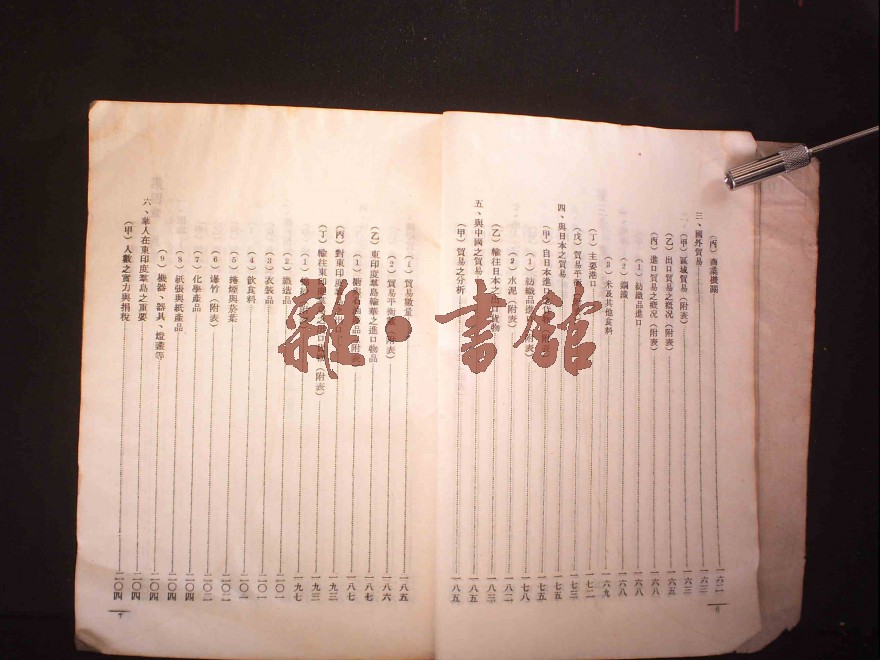 (丙)商業機關 一六二
三、國外貿易 一六三
(甲)區域貿易(附表) 一六三
(乙)出口貿易之概况(附表) 一六五
(丙)進口貿易之概况(附表) 一六八
(1)紡織品進口 一六八
(2)鋼鐵 一六八
(3)米及其他食料 一六九
(丁)主要港口 一七二
(戊)貿易平 一七三
四、與日本之貿易 一七五
(甲)自日本進口之 一七五
(1)紡織品進 (附表) 一七八
(2)水泥(附表) 一八二
(乙)輸往日本之出口貨物 一八三
五、與中國之貿易 一八五
(甲)貿易之分析 一八五
(1)貿易數量 一八五
(2)貿易平衡 (附表) 一八六
(乙)東印度羣島輸華之進口物品 一八七
(1) 品(附表) 一八七
(丙)對東印度 一九三
(丁)輸往東印度 口 (附表) 一九三
(1) 一九七
(2)織造品 二〇一
(3)衣裝品 二〇一
(4)飲食料 二〇一
(5)捲烟與菸葉 二〇二
(6)爆竹(附表) 二〇二
(7)化學產品 二〇四
(8)紙張與紙產品 二〇四
(9)機器、器具、燈 等 二〇四
六、華人在東印度羣島之重要 二〇四
(甲)人數之實力與捐稅 二〇四
雜·書館